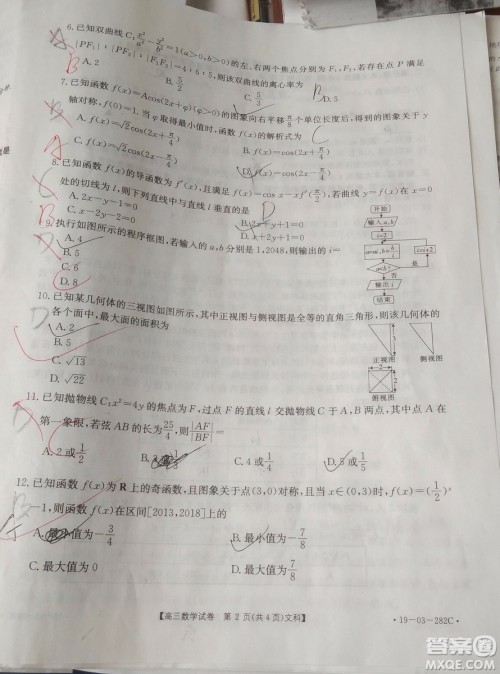 6.已知双曲线C:x²/a²-y²/b²=1(a>0,b>0)的左、右两个焦点分别为F₁、F₂,若存在点P满足
|PF₁|:|PF₂|:|F₁F₂|=4:6:5,则该双曲线的离心率为
A.2 B.5/2 C.5/3 D.5
7.已知函数f(x)=Acos(2x+φ)(φ>0)的图象向右平移π/8个单位长度后,得到的图象关于y
轴对称,f(0)=1,当φ取得最小值时,函数f(x)的解析式为
A.f(x)=√2cos(2x+π/4) B.f(x)=cos(2x+π/4)
C.f(x)=√2cos(2x-π/4) D.f(x)=cos(2x-π/4)
8.已知函数f(x)的导函数为f′(x),且满足f(x)=cos x-xf′(π/2),若曲线y=f(x)在x=0
处的切线为l,则下列直线中与直线l垂直的是
A.2x-y-1=0 B.2x+y+1=0
C.x-2y-2=0 D.x+2y+1=0
9.执行如图所示的程序框图,若输入的a,b分别是1,2048,则输出的i=
A.4
B.5
C.6
D.8
开始
输入a,b
i=i+2
否
是
输出i
结束
10.已知某几何体的三视图如图所示,其中正视图与侧视图是全等的直角三角形,则该几何体的
各个面中,最大面的面积为
A.2
B.5
C.√13
D.√22
正视图 侧视图
俯视图
11.已知抛物线C:x²=4y的焦点为F,过点F的直线l交抛物线C于A,B两点,其中点A在
第一象限,若弦AB的长为25/4,则|AF|/|BF|=
A.2或1/2 B.3或1/3 C.4或1/4 D.5或1/5
12.已知函数f(x)为R上的奇函数,且图象关于点(3,0)对称,且当x∈(0,3)时,f(x)=(1/2)ˣ
-1,则函数f(x)在区间[2013,2018]上的
A.最小值为-3/4 B.最小值为-7/8
C.最大值为0 D.最大值为7/8
【高三数学试卷 第2页(共4页)文科】
·19-03-282C·
作业帮
zuoyebang.com